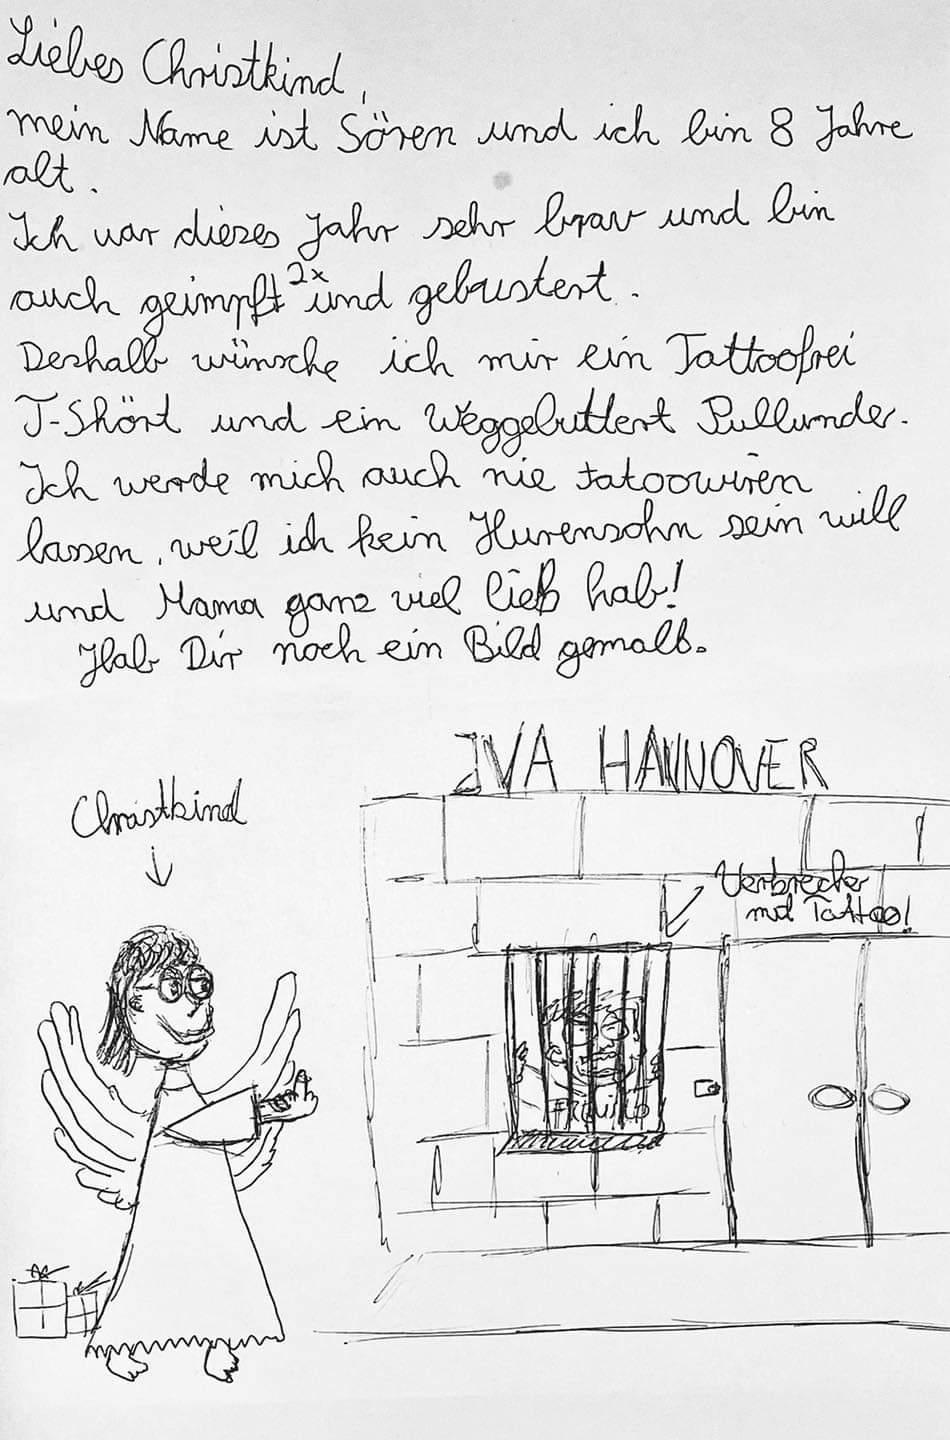 Liebes Christkind,
mein Name ist Sören und ich bin 8 Jahre
alt.
Ich war dieses Jahr sehr brav und bin
auch geimpft 2x und gebustert.
Deshalb wünsche ich mir ein Tattoofrei
T-Shört und ein Weggebuttert Pullunder.
Ich werde mich auch nie tatoowiren
lassen, weil ich kein Hurensohn sein will
und Mama ganz viel lieb hab!
Hab Dir noch ein Bild gemalt.
JVA HANNOVER
Christkind
Verbrecher
mit Tattoo!